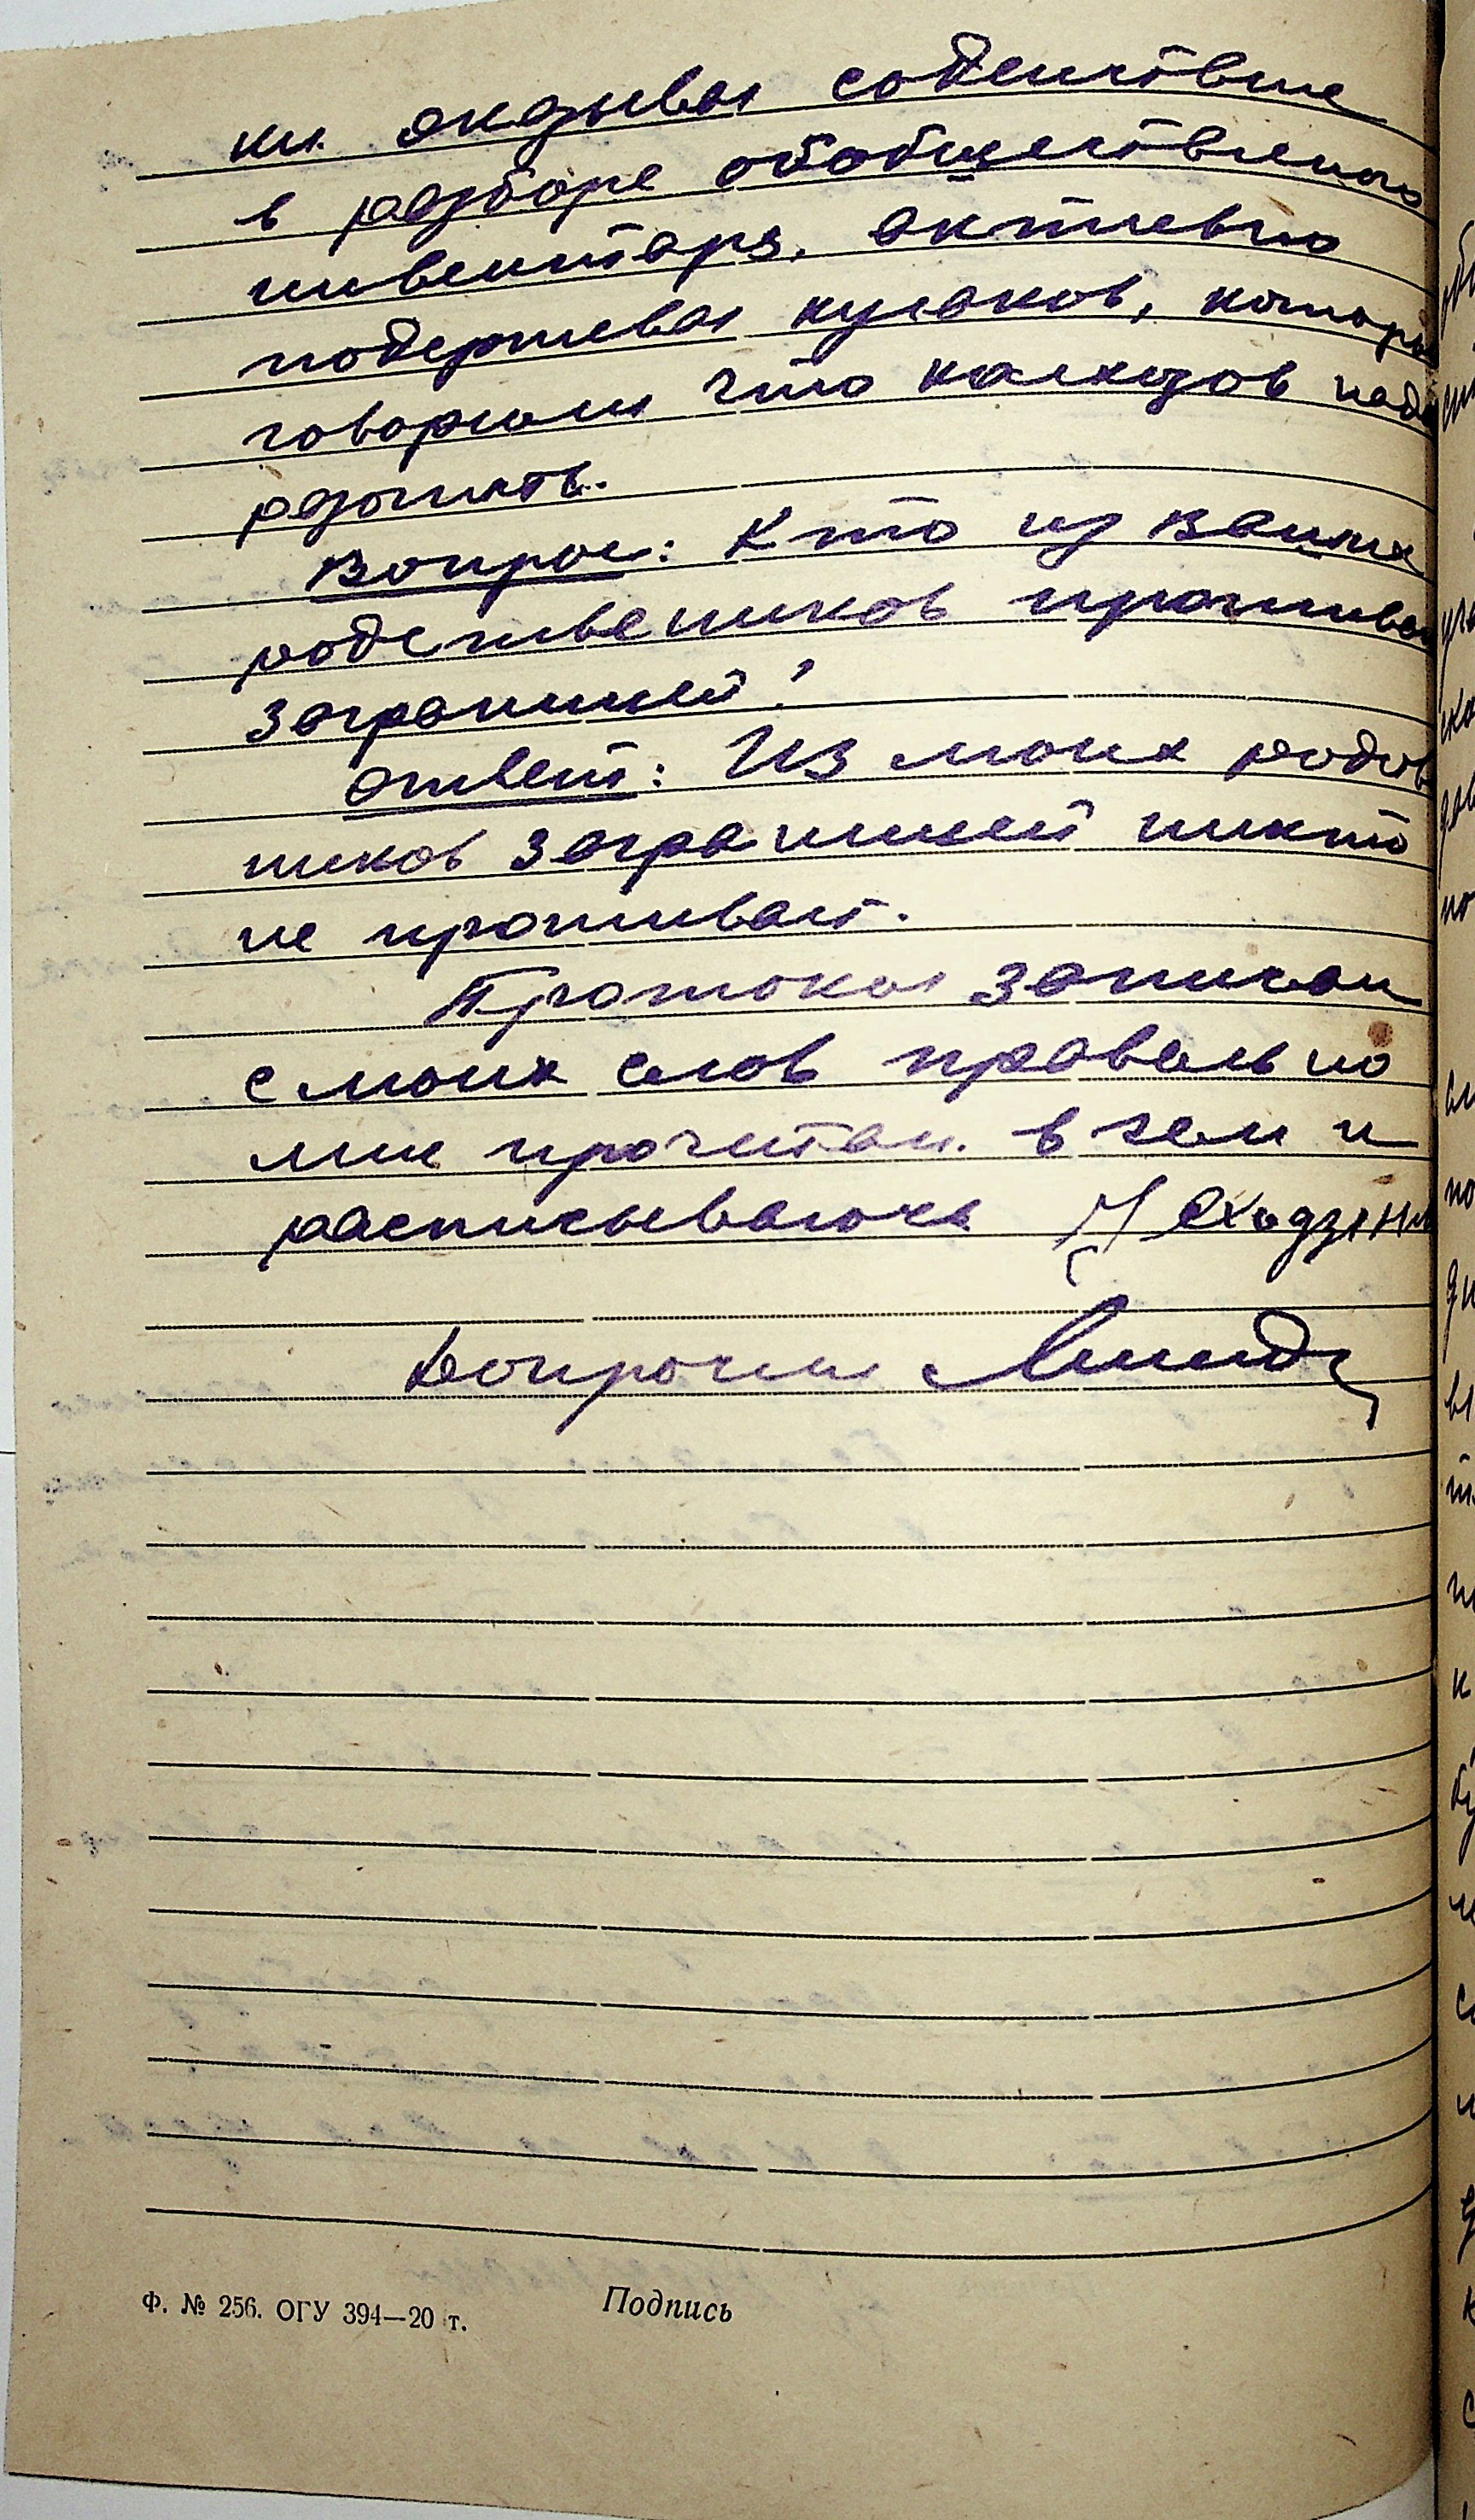 им оказывал содействие
в разборе обобществленого
инвентаря, активно
подерживал кулаков, которы
говорили что калхозов надо
разогнать.
Вопрос: Кто из ваших
родствеников проживает
заграницей?
Ответ: Из моих родов
ников заграницей никто
не проживает.
Протокол записан
с моих слов правельно
мне прочитан. в чем и
расписываюсь
Допросил
Ф. № 256. ОГУ 394—20 т.
Подпись